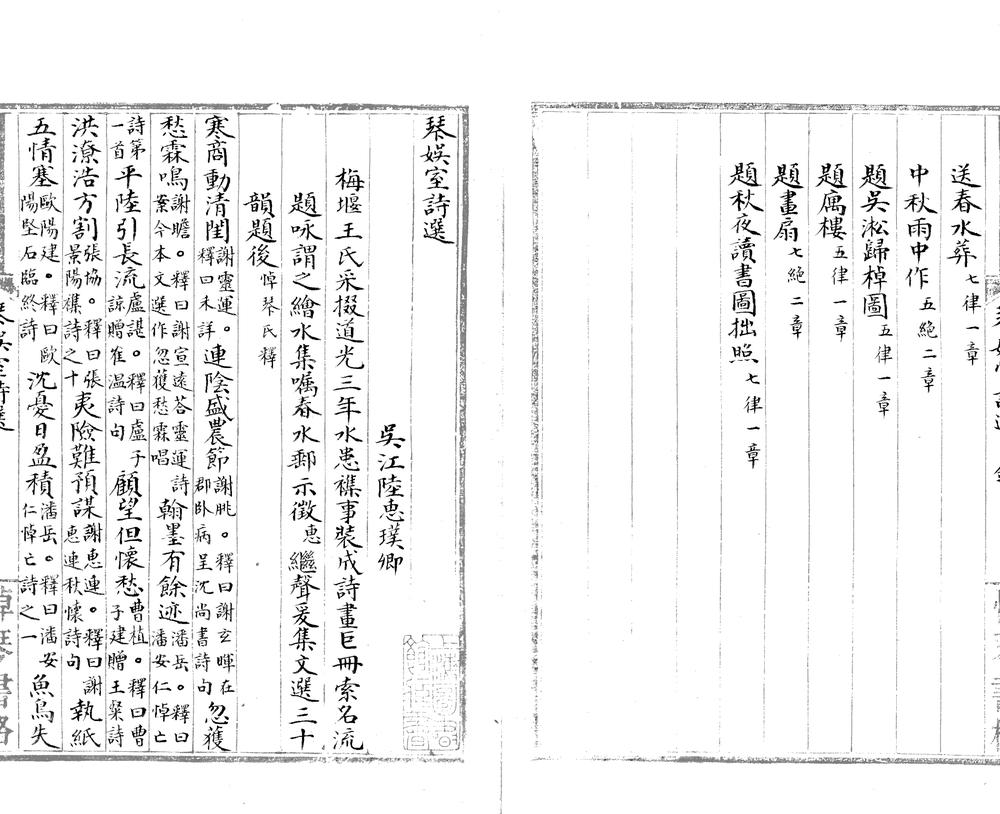 送春水葬 七律一章
中秋雨中作 五絕二章
題吳淞歸棹圖 五律一章
題寓樓 五律一章
題畫扇 七絕二章
題秋夜讀書圖拙照 七律一章
琴娛室詩選
吳江陸惠璞卿
梅堰王氏采掇道光三年水患襍事裝成詩畫巨冊索名流
題咏謂之繪水集嘱春水郵示徵惠繼聲爰集文選三十
韻題後 悼琴氏釋
寒商動清閨 謝靈運。釋曰未詳 連陰盛農節 謝眺。釋曰謝玄暉在郡卧病呈沈尚書詩句 忽獲
愁霖鳴 謝瞻。釋曰謝宣遠荅靈運詩案今本文選作忽獲愁霖唱 翰墨有餘迹 潘岳。釋曰潘安仁悼亡
詩第一首 平陸引長流 盧諶。釋曰盧子諒贈崔温詩句 顧望但懷愁 曹植。釋曰曹子建贈王粲詩
洪潦浩方割 張協。釋曰張景陽襍詩之十 夷險難預謀 謝惠連。釋曰謝惠連秋懷詩句 執紙
五情塞 歐陽建。釋曰歐陽堅石臨終詩 沈憂日盈積 潘岳。釋曰潘安仁悼亡詩之一 魚鳥失
琴娛室詩選